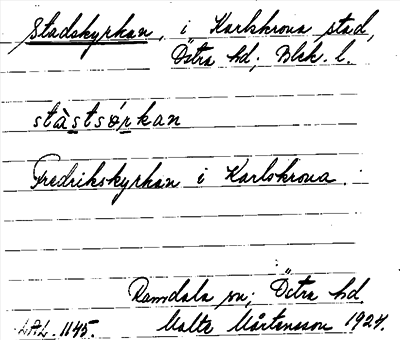 Stadskyrkan, i Karlskrona stad,
Östra hd; Blek. l.
stàstsórkan
Fredrikskyrkan i Karlskrona.
Ramdala sn; Östra hd.
LAL. 1145. Malte Mårtensson 1927.